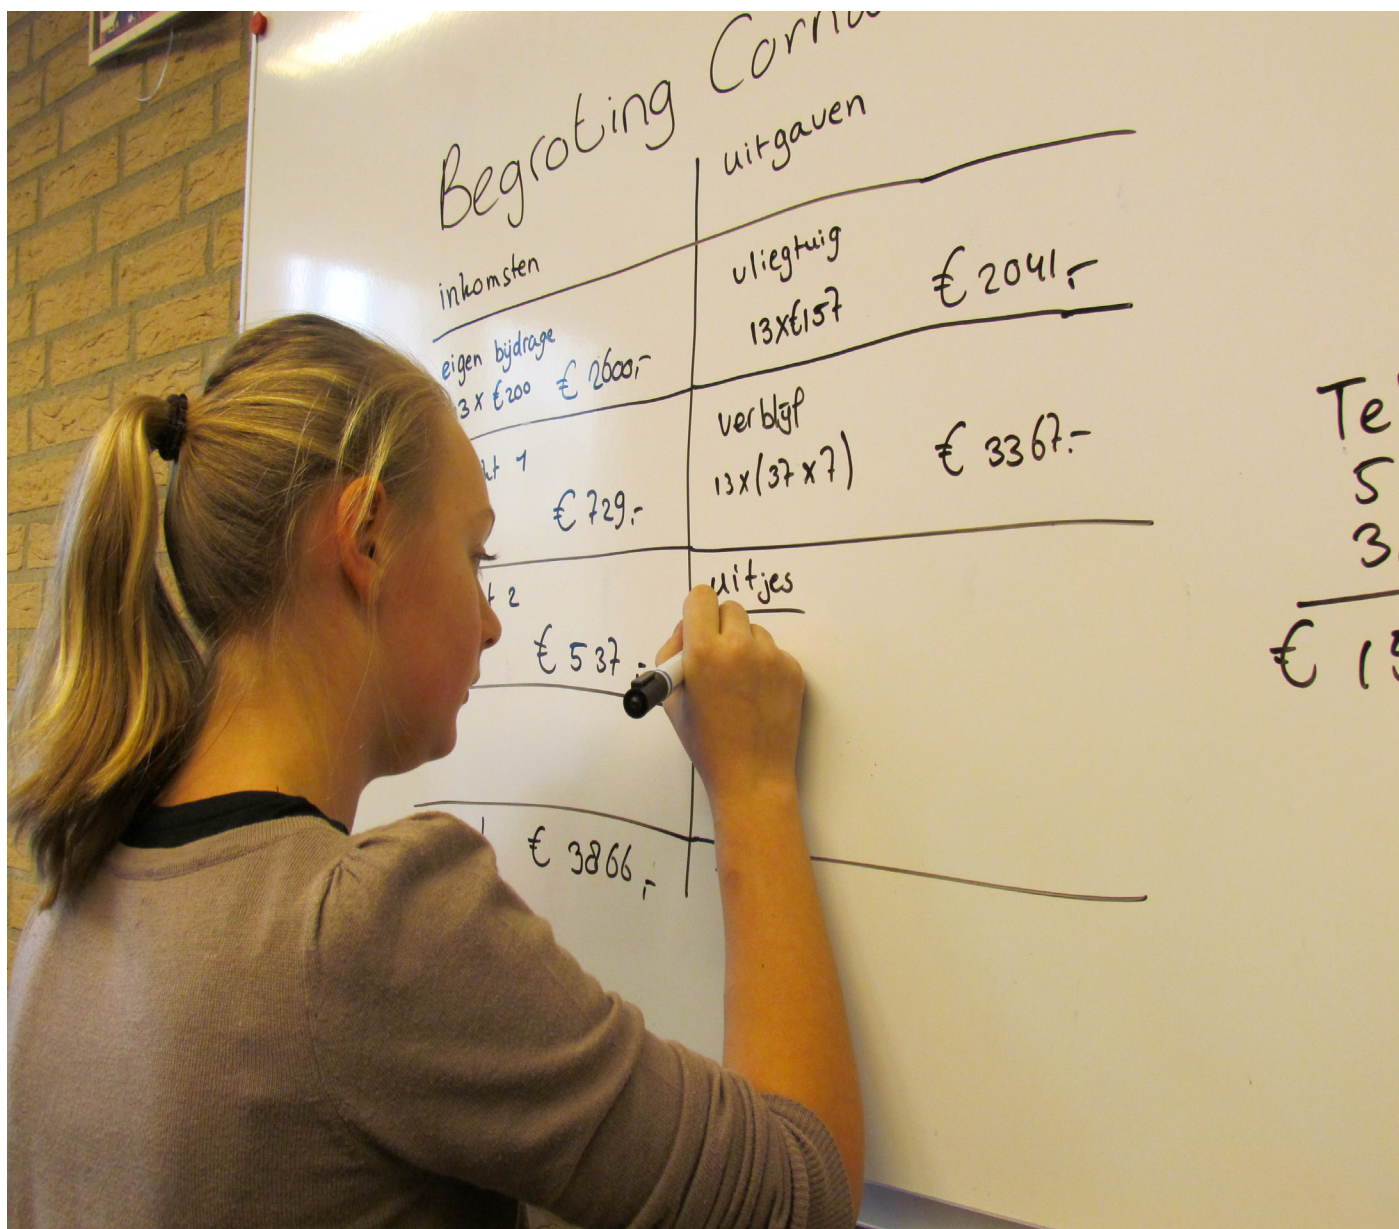 Begroting
inkomsten
eigen bijdrage
3 x €200 € 2600,-
1
€ 729,-
2
€ 537,-
€ 3866,-
uitgaven
vliegtuig
13x€157 € 2041,-
verblijf
13x(37x7) € 3367,-
uitjes
Te
5
3
€ 1